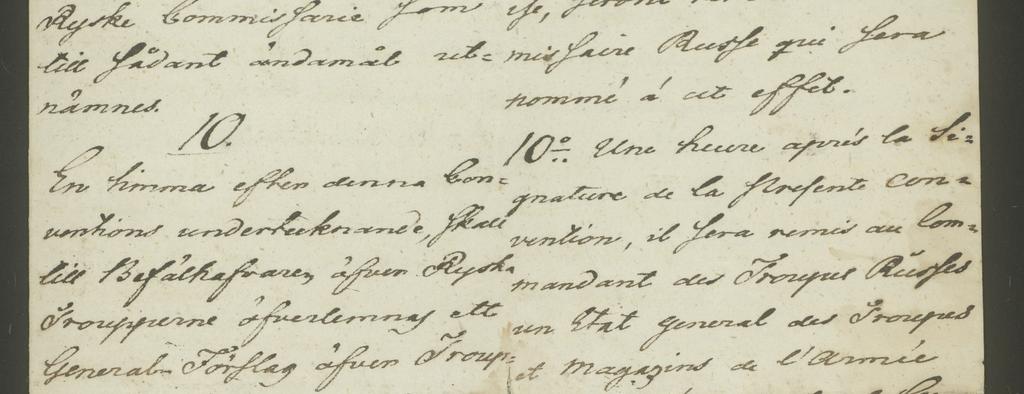 Ryske Commissarie som
till sådant ändamål ut=
nämnes.
10.
En timma efter denna Con=
ventions undertecknande, skall
till Befälhafvaren öfver Ryska
Troupperne öfverlemnas ett
General-Förslag öfver Troup=
missaire Russe qui sera
nommé á cet effet.
10º. Une heure aprés la Si=
gnature de la presente con=
vention, il sera remis au Com=
mandant des Troupes Russes
un Etat general des Troupes
et magazins de l'Armée